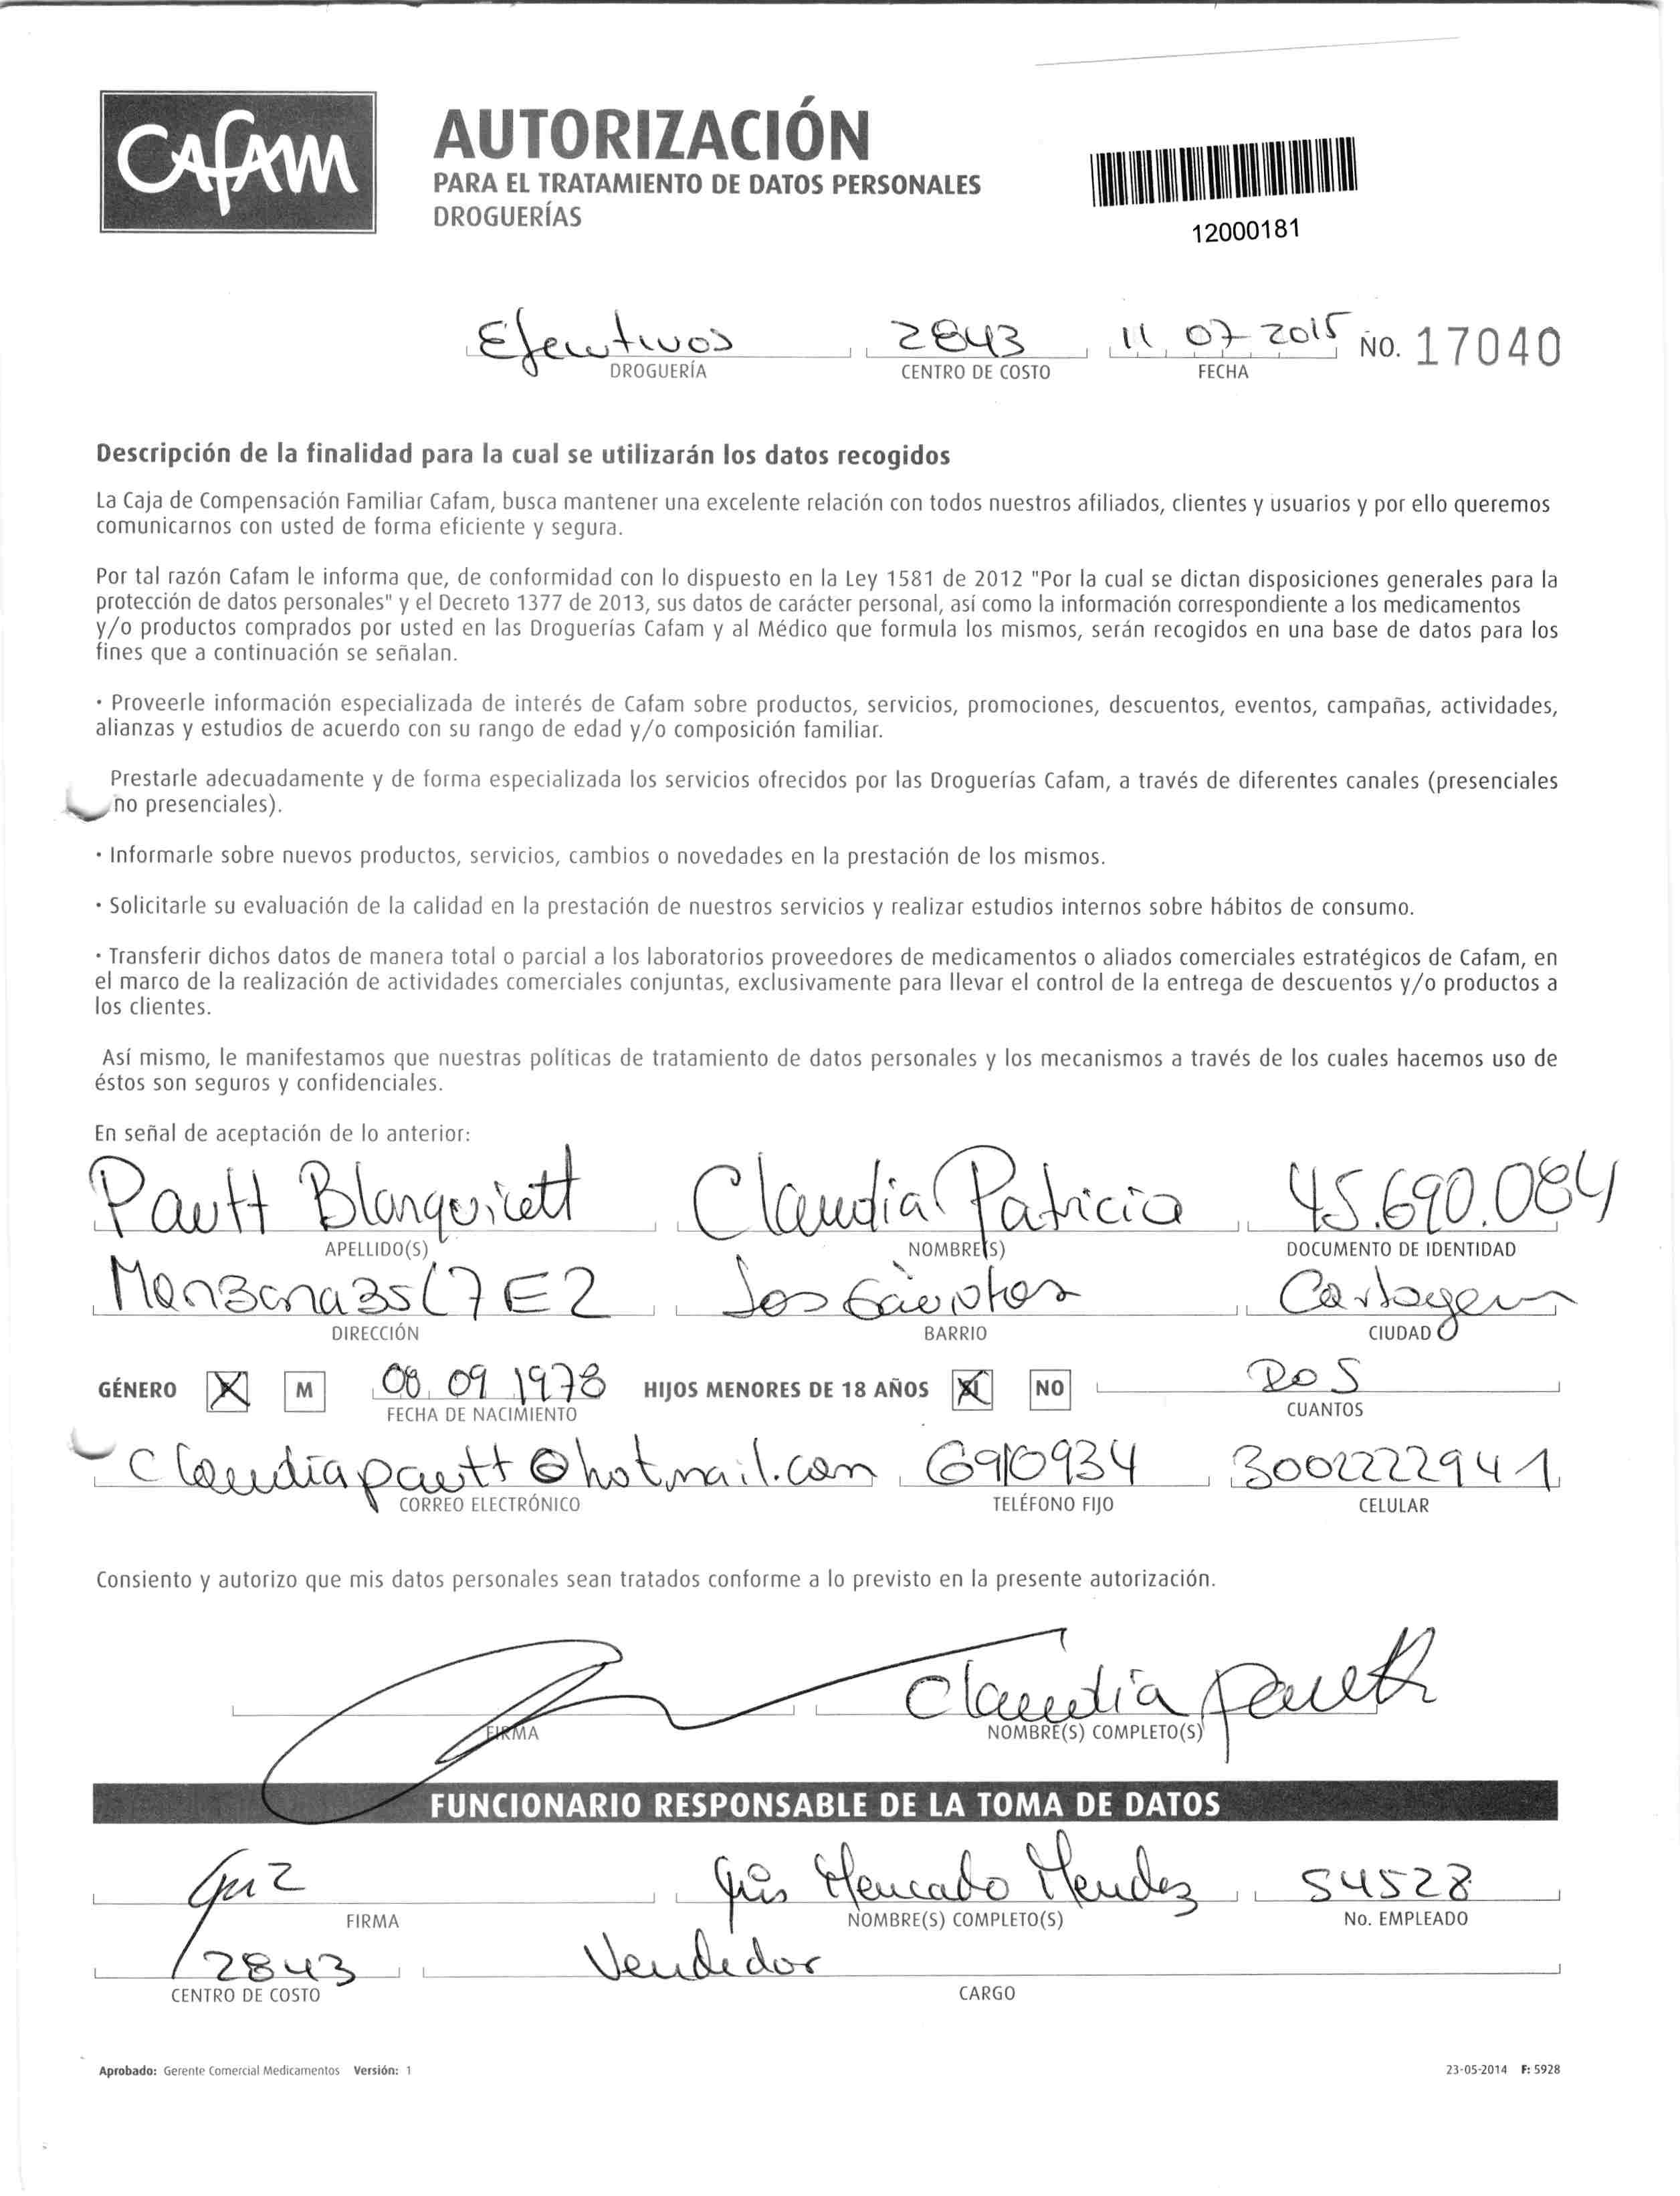 Cafam
AUTORIZACIÓN
PARA EL TRATAMIENTO DE DATOS PERSONALES
DROGUERÍAS
12000181
Efecutivos 2843 11 07 2015 NO. 17040
DROGUERÍA CENTRO DE COSTO FECHA
Descripción de la finalidad para la cual se utilizarán los datos recogidos
La Caja de Compensación Familiar Cafam, busca mantener una excelente relación con todos nuestros afiliados, clientes y usuarios y por ello queremos
comunicarnos con usted de forma eficiente y segura.
Por tal razón Cafam le informa que, de conformidad con lo dispuesto en la Ley 1581 de 2012 "Por la cual se dictan disposiciones generales para la
protección de datos personales" y el Decreto 1377 de 2013, sus datos de carácter personal, así como la información correspondiente a los medicamentos
y/o productos comprados por usted en las Droguerías Cafam y al Médico que formula los mismos, serán recogidos en una base de datos para los
fines que a continuación se señalan.
· Proveerle información especializada de interés de Cafam sobre productos, servicios, promociones, descuentos, eventos, campañas, actividades,
alianzas y estudios de acuerdo con su rango de edad y/o composición familiar.
Prestarle adecuadamente y de forma especializada los servicios ofrecidos por las Droguerías Cafam, a través de diferentes canales (presenciales
no presenciales).
· Informarle sobre nuevos productos, servicios, cambios o novedades en la prestación de los mismos.
· Solicitarle su evaluación de la calidad en la prestación de nuestros servicios y realizar estudios internos sobre hábitos de consumo.
· Transferir dichos datos de manera total o parcial a los laboratorios proveedores de medicamentos o aliados comerciales estratégicos de Cafam, en
el marco de la realización de actividades comerciales conjuntas, exclusivamente para llevar el control de la entrega de descuentos y/o productos a
los clientes.
Así mismo, le manifestamos que nuestras políticas de tratamiento de datos personales y los mecanismos a través de los cuales hacemos uso de
éstos son seguros y confidenciales.
En señal de aceptación de lo anterior:
Pautt Blanquicett Claudia Patricia 45.690.084
APELLIDO(S) NOMBRE(S) DOCUMENTO DE IDENTIDAD
Manzana 35 L7 E2 Los Cartagena
DIRECCIÓN BARRIO CIUDAD
GÉNERO X M 08 09 1978 HIJOS MENORES DE 18 AÑOS SI NO DOS
FECHA DE NACIMIENTO CUANTOS
Claudiapautt@hotmail.com 6910934 3002222941
CORREO ELECTRÓNICO TELÉFONO FIJO CELULAR
Consiento y autorizo que mis datos personales sean tratados conforme a lo previsto en la presente autorización.
Claudia Pautt
FIRMA NOMBRE(S) COMPLETO(S)
FUNCIONARIO RESPONSABLE DE LA TOMA DE DATOS
Mercado Mendez 54528
FIRMA NOMBRE(S) COMPLETO(S) No. EMPLEADO
2843 Vendedor
CENTRO DE COSTO CARGO
Aprobado: Gerente Comercial Medicamentos Versión: 1 23-05-2014 F: 5928